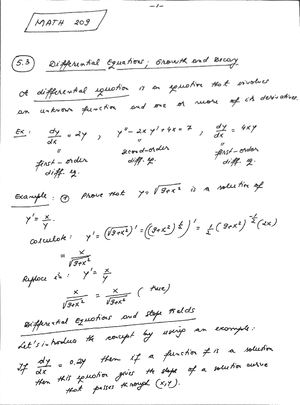 -1-
MATH 209
5.3 Differential Equations; Growth and Decay
A differential equation is an equation that involves
an unknown function and one or more of its derivatives.
Ex: dy/dx = 2y, y'' - 2xy' + 4x = 7, dy/dx = 4xy
first-order diff. eq. second-order diff. eq. first-order diff. eq.
Example: Prove that y = √(9+x²) is a solution of
y' = x/y.
Calculate: y' = (√(9+x²))' = ((9+x²)^½)' = ½(9+x²)^-½ (2x)
= x/√(9+x²)
Replace in: y' = x/y
x/√(9+x²) = x/√(9+x²) (true)
Differential Equations and Slope Fields
Let's introduce the concept by using an example:
If dy/dx = 0.2y then if a function f is a solution
then this equation gives the slope of a solution curve
that passes through (x,y).